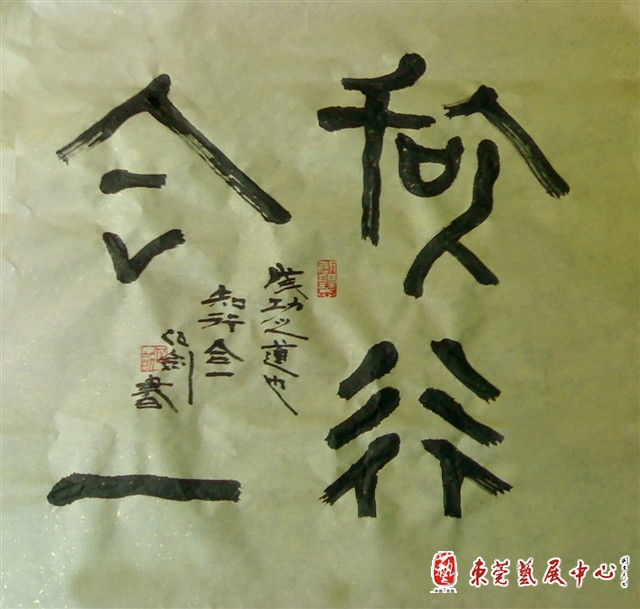 知行
合一
成功之道也
知行合一
剑書
東莞藝展中心